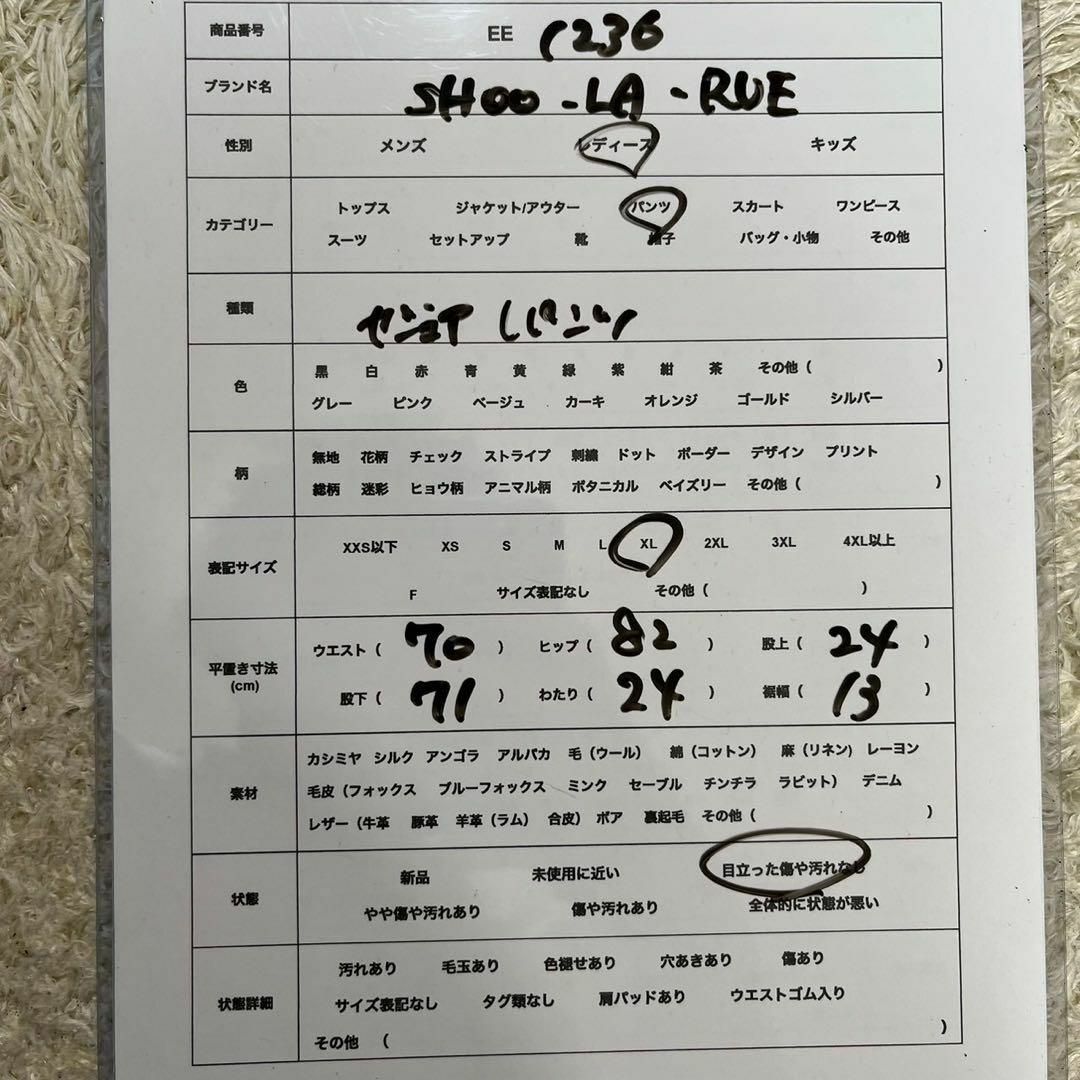 商品番号 EE 1236
ブランド名 SHOO-LA-RUE
性別 メンズ レディース キッズ
カテゴリー
トップス ジャケット/アウター パンツ スカート ワンピース
スーツ セットアップ 靴 帽子 バッグ・小物 その他
種類 パンツ
色
黒 白 赤 青 黄 緑 紫 紺 茶 その他 ( )
グレー ピンク ベージュ カーキ オレンジ ゴールド シルバー
柄
無地 花柄 チェック ストライプ 刺繍 ドット ボーダー デザイン プリント
総柄 迷彩 ヒョウ柄 アニマル柄 ボタニカル ペイズリー その他 ( )
表記サイズ
XXS以下 XS S M L XL 2XL 3XL 4XL以上
F サイズ表記なし その他 ( )
平置き寸法
(cm)
ウエスト ( 70 ) ヒップ ( 82 ) 股上 ( 24 )
股下 ( 71 ) わたり ( 24 ) 裾幅 ( 13 )
素材
カシミヤ シルク アンゴラ アルパカ 毛（ウール） 綿（コットン） 麻（リネン) レーヨン
毛皮（フォックス ブルーフォックス ミンク セーブル チンチラ ラビット） デニム
レザー（牛革 豚革 羊革（ラム） 合皮） ボア 裏起毛 その他 ( )
状態
新品 未使用に近い 目立った傷や汚れなし
やや傷や汚れあり 傷や汚れあり 全体的に状態が悪い
状態詳細
汚れあり 毛玉あり 色褪せあり 穴あきあり 傷あり
サイズ表記なし タグ類なし 肩パッドあり ウエストゴム入り
その他 ( )